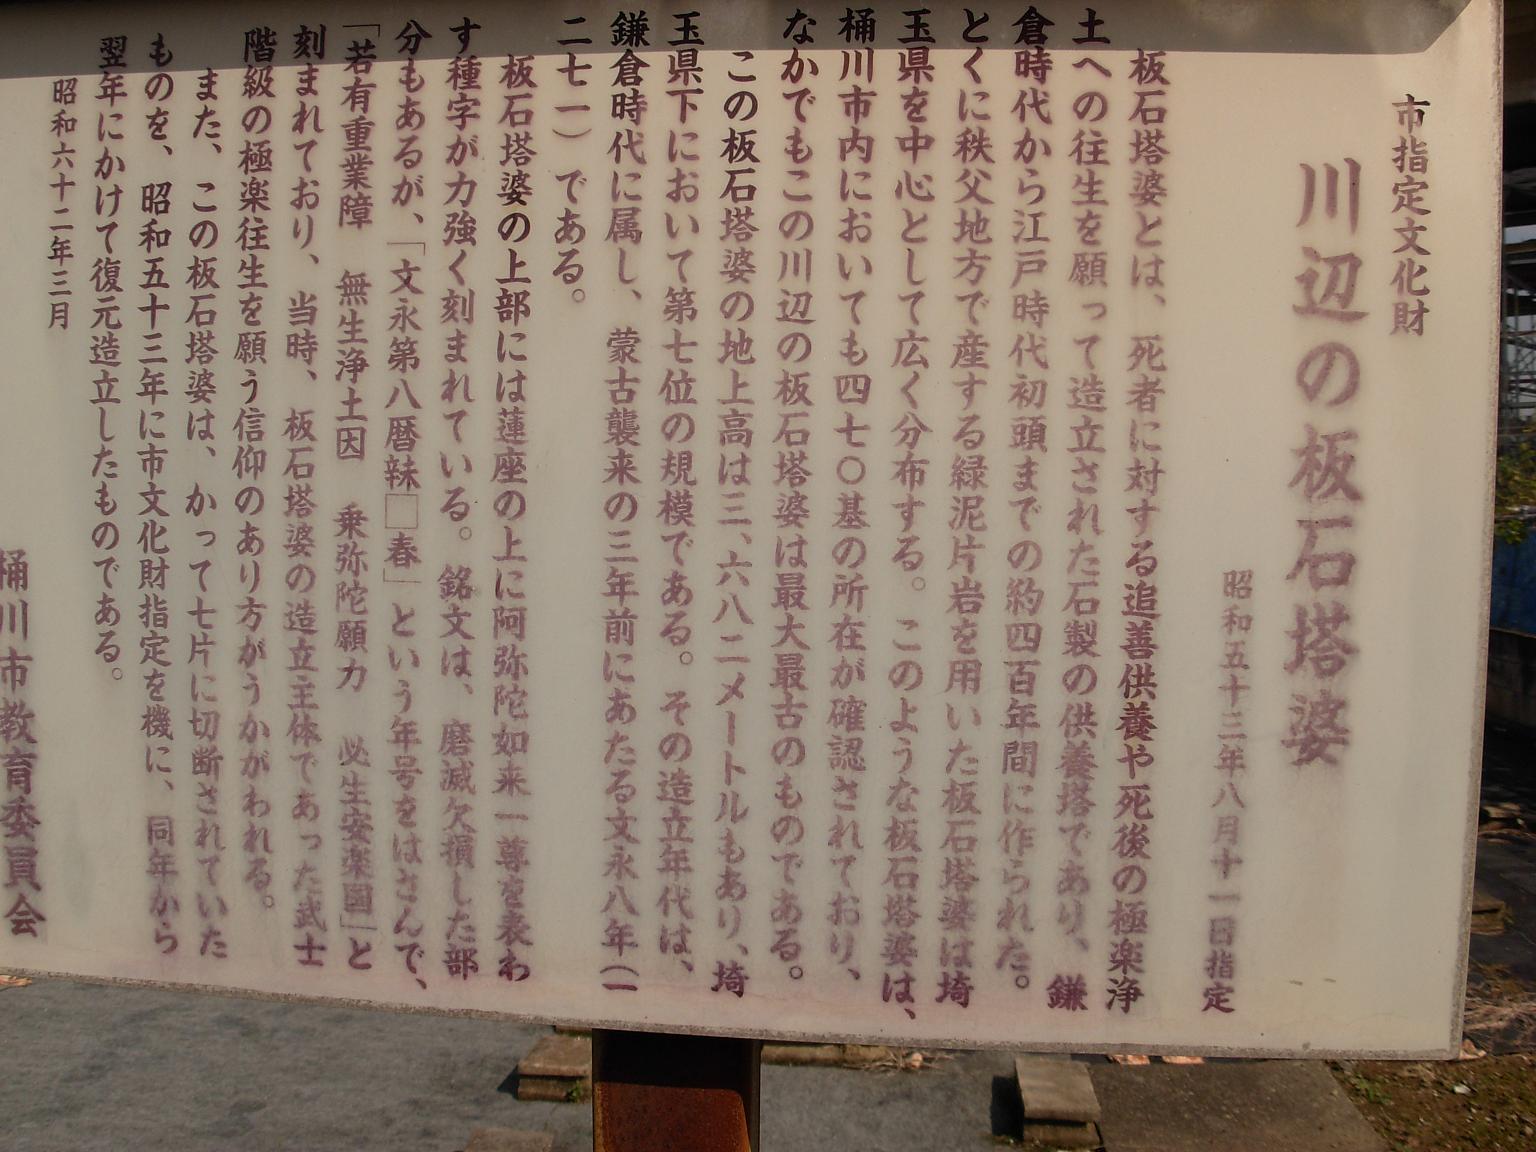 市指定文化財
川辺の板石塔婆
昭和五十三年八月十一日指定
板石塔婆とは、死者に対する追善供養や死後の極楽浄
土への往生を願って造立された石製の供養塔であり、鎌
倉時代から江戸時代初頭までの約四百年間に作られた。
とくに秩父地方で産する緑泥片岩を用いた板石塔婆は埼
玉県を中心として広く分布する。このような板石塔婆は、
桶川市内においても四七〇基の所在が確認されており、
なかでもこの川辺の板石塔婆は最大最古のものである。
この板石塔婆の地上高は三、六八二メートルもあり、埼
玉県下において第七位の規模である。その造立年代は、
鎌倉時代に属し、蒙古襲来の三年前にあたる文永八年(一
二七一)である。
板石塔婆の上部には蓮座の上に阿弥陀如来一尊を表わ
す種字が力強く刻まれている。銘文は、磨滅欠損した部
分もあるが、「文永第八暦辣□春」という年号をはさんで、
「若有重業障 無生浄土因 乗弥陀願力 必生安楽国」と
刻まれており、当時、板石塔婆の造立主体であった武士
階級の極楽往生を願う信仰のあり方がうかがわれる。
また、この板石塔婆は、かって七片に切断されていた
ものを、昭和五十三年に市文化財指定を機に、同年から
翌年にかけて復元造立したものである。
昭和六十二年三月
桶川市教育委員会